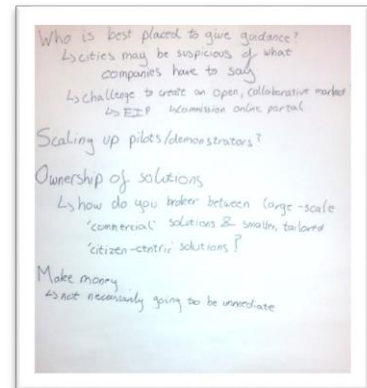 Who is best placed to give guidance?
↳ cities may be suspicious of what
companies have to say
↳ challenge to create an open, collaborative market
↳ EIP ↳ Commission online portal
Scaling up pilots/demonstrators?
Ownership of solutions
↳ how do you broker between large-scale
'commercial' solutions & smaller, tailored
'citizen-centric' solutions?
Make money
↳ not necessarily going to be immediate